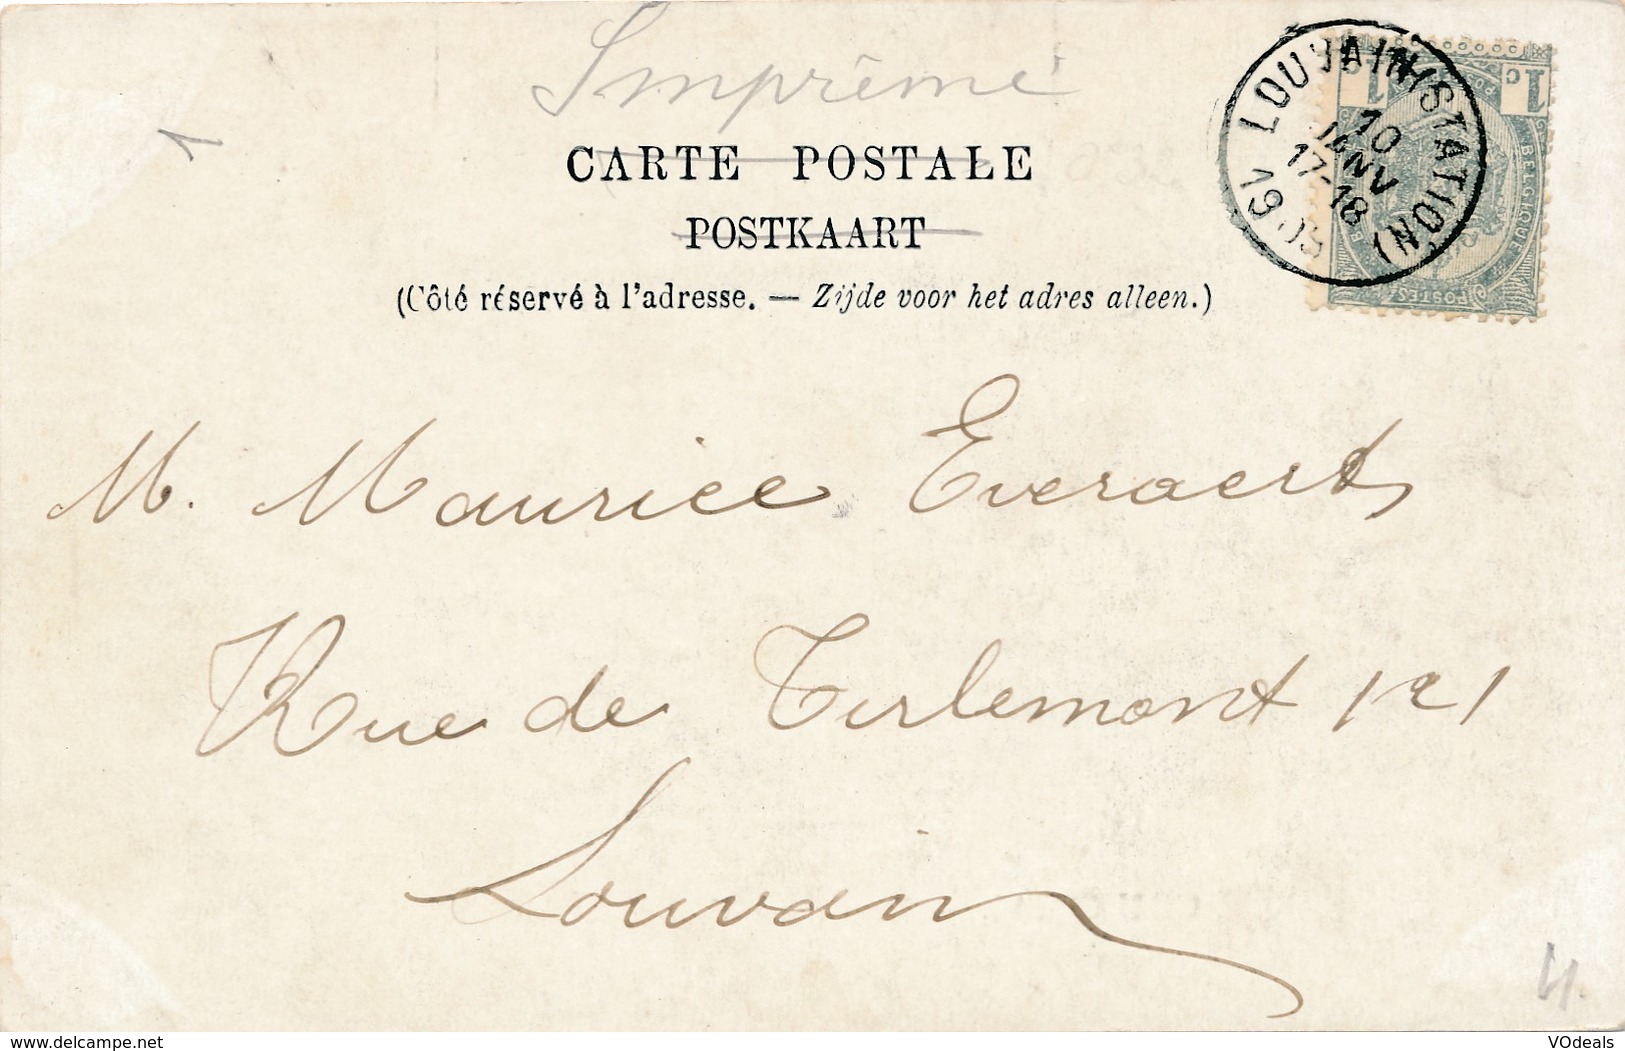 Imprimé
CARTE POSTALE
POSTKAART
(Côté réservé à l'adresse. — Zijde voor het adres alleen.)
LOUVAIN (STATION)
10
JANV
17-18
1905
1c 1
BELGIQUE
POSTES
M. Maurice Everaert
Rue de Tirlemont 121
Louvain
4.
delcampe.net
VOdeals